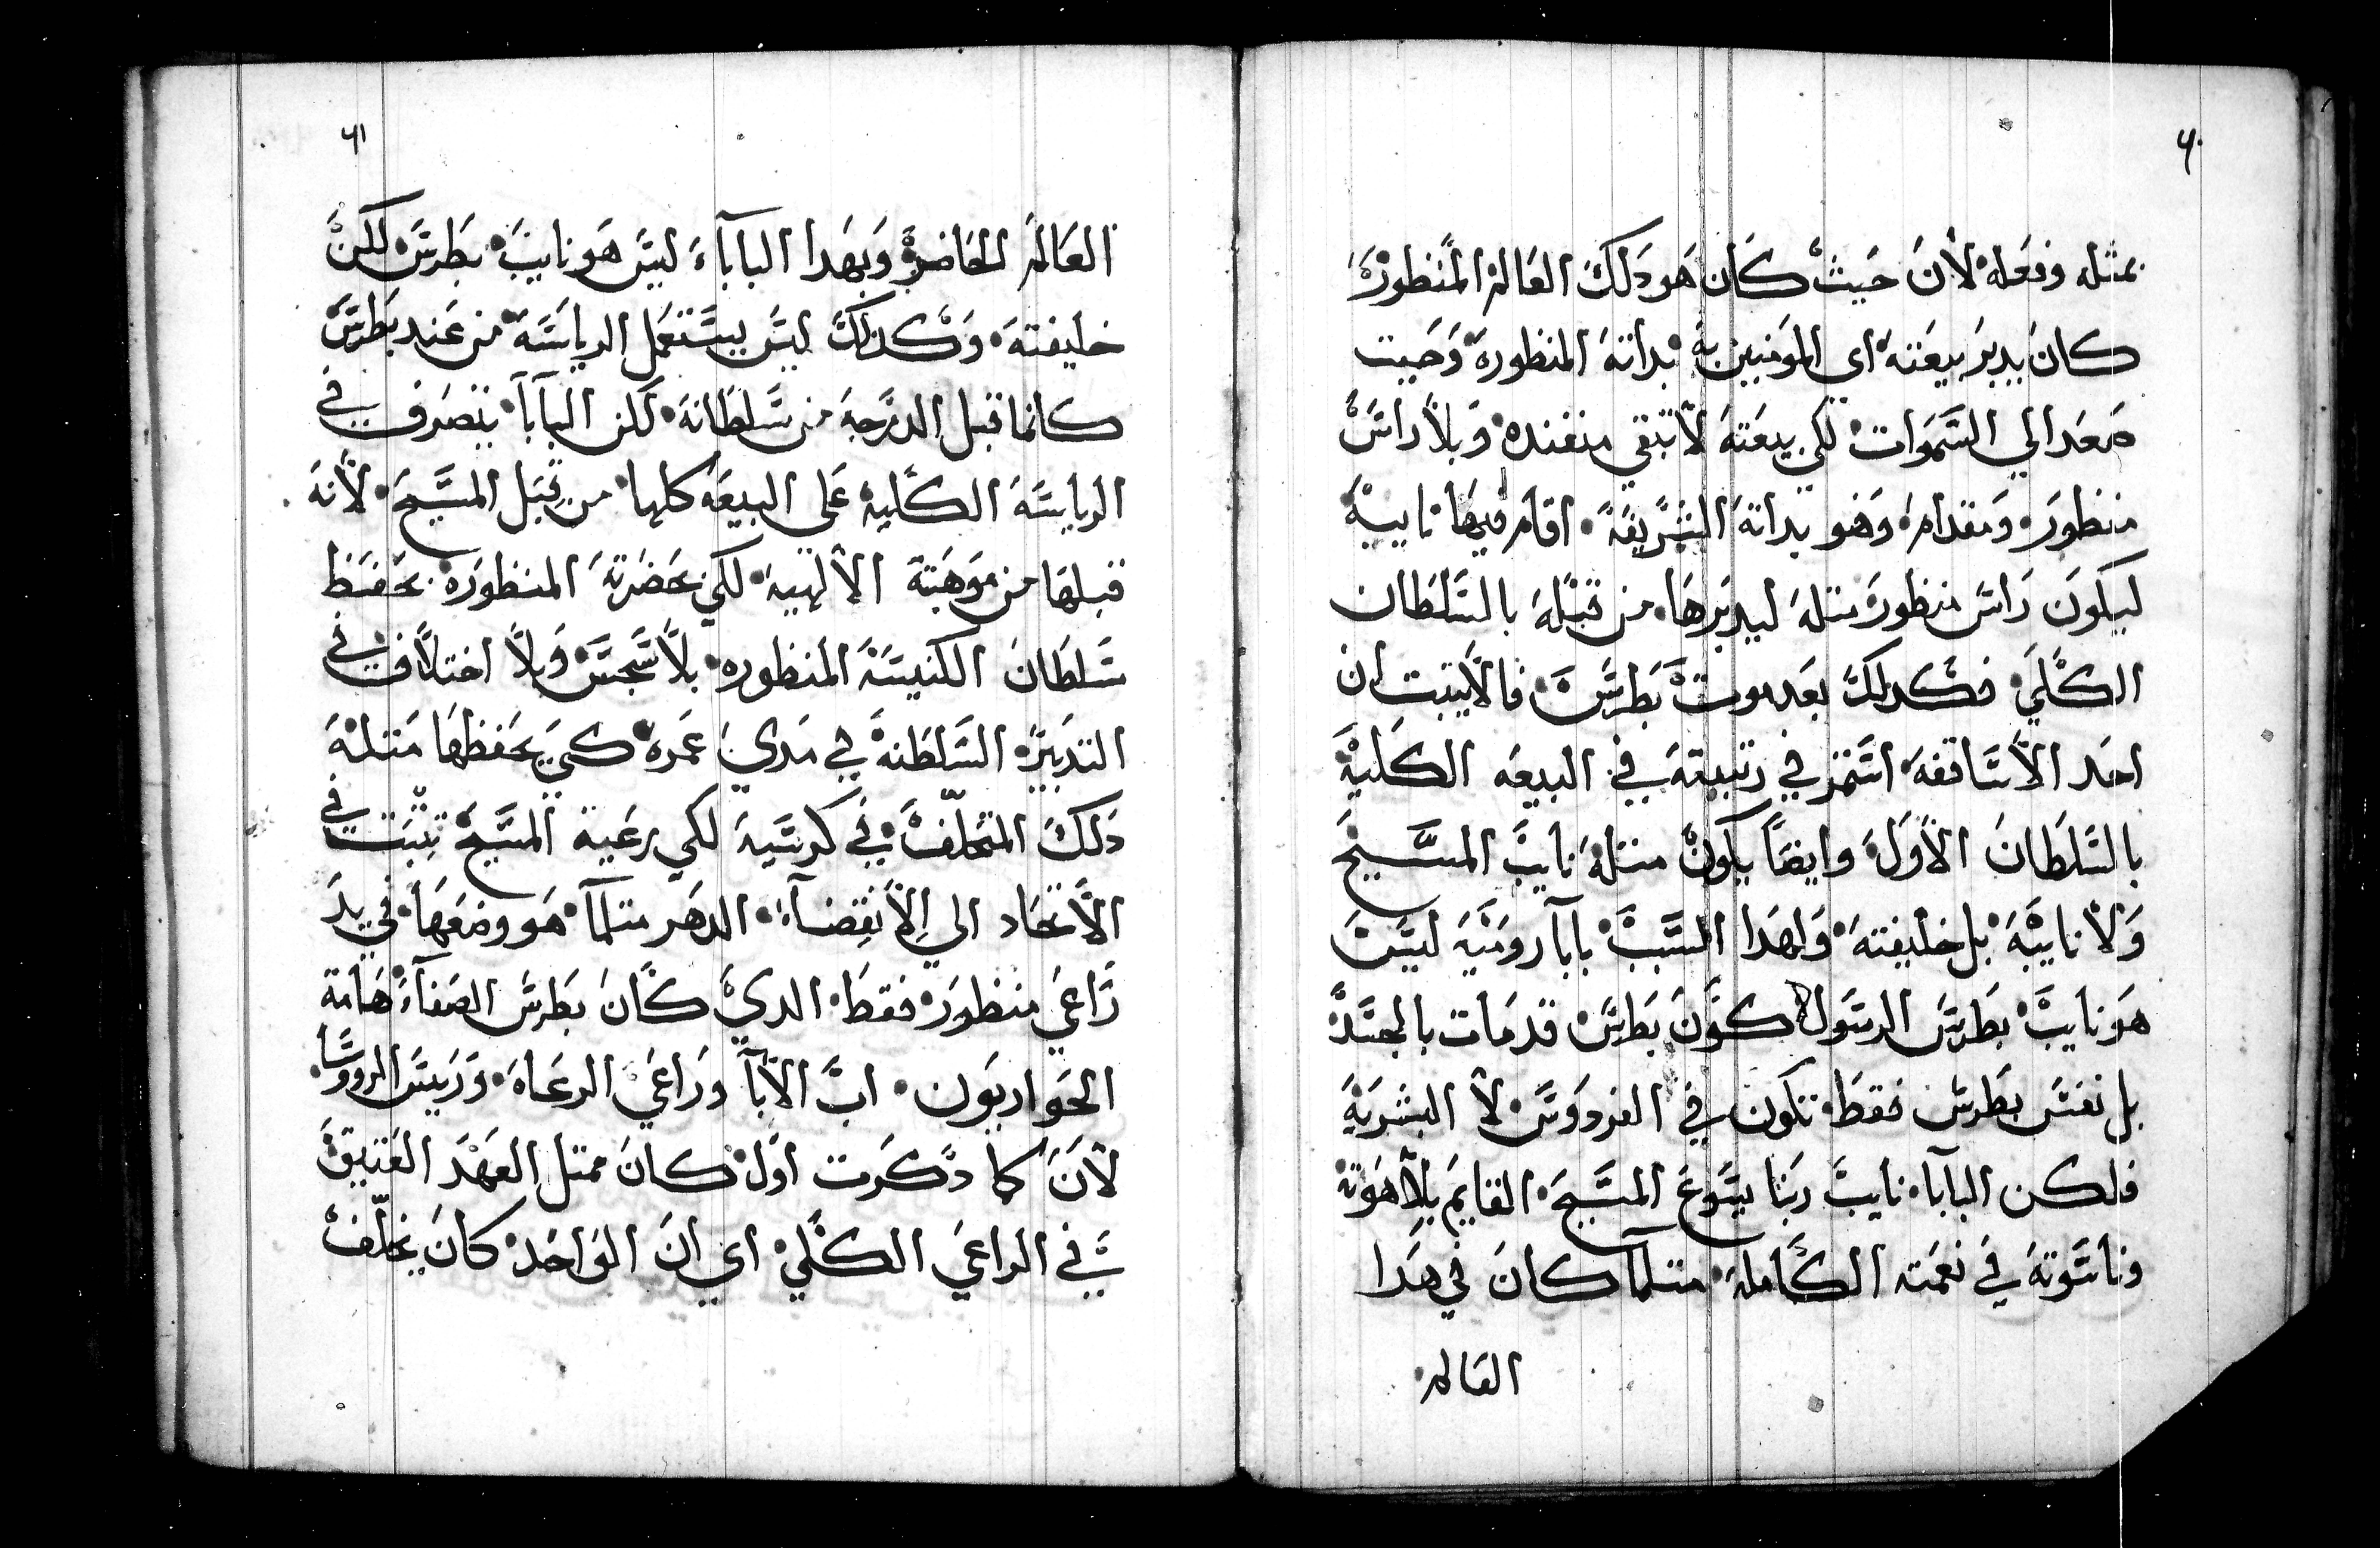 ٦٠
بمثله وفعله لأن حيث كان هو دلك العالم المنظوره
كان يدبر بيعته اي المومنين به بداته المنظوره وحيت
صعد الي السموات لكي بيعته لا تبقي منفنده وبلا راس
منظور ومقدام وهو بداته الشريفة اقام فيها نايبه
ليكون راس منظور متله ليدبرها من قبله بالسلطان
الكلي فكدلك بعد موت بطرس فالا يتبت ان
احد الاساقفه استمر في رتبيته في البيعه الكلية
بالسلطان الاول وايضا يكون متله نايب المسيح
ولا نايبه بل خليفته ولهدا السبب بابا روميه ليس
هو نايب بطرس الرسول كون بطرس قد مات بالجسد
بل نفس بطرس فقط تكون في الفردوس لا البشرية
فلكن البابا نايب ربنا يسوع المسيح القايم بلاهوته
وناسوته في نعمته الكامله متلما كان في هدا
العالم
٦١
العالم الحاضر وبهدا الباباء ليس هو نايب بطرس لكن
خليفته وكدلك ليس يستعمل الرياسة من عند بطرس
كانما قبل الدرجه من سلطانه لكن البابا يتصرف في
الرياسة الكليه على البيعه كلها من قبل المسيح لانه
قبلها من موهبته الالهيه لكي بحضرته المنظوره يحفظ
سلطان الكنيسة المنظوره بلا سجس وبلا اختلاف في
التدبير السلطنه في مدي عمره كي يحفظها متله
دلك المتخلف في كرسيه لكي رعية المسيح تثبت في
الاتحاد الي الانقضاء الدهر متلما هو وضعها في يد
راعي منظور فقط الدي كان بطرس الصفاء هامة
الحواريون اب الابا وراعي الرعاه وريس الروسا
لان كما دكرت اول كان ممتل العهد العتيق
في الراعي الكلي اي ان الواحد كان يخلف